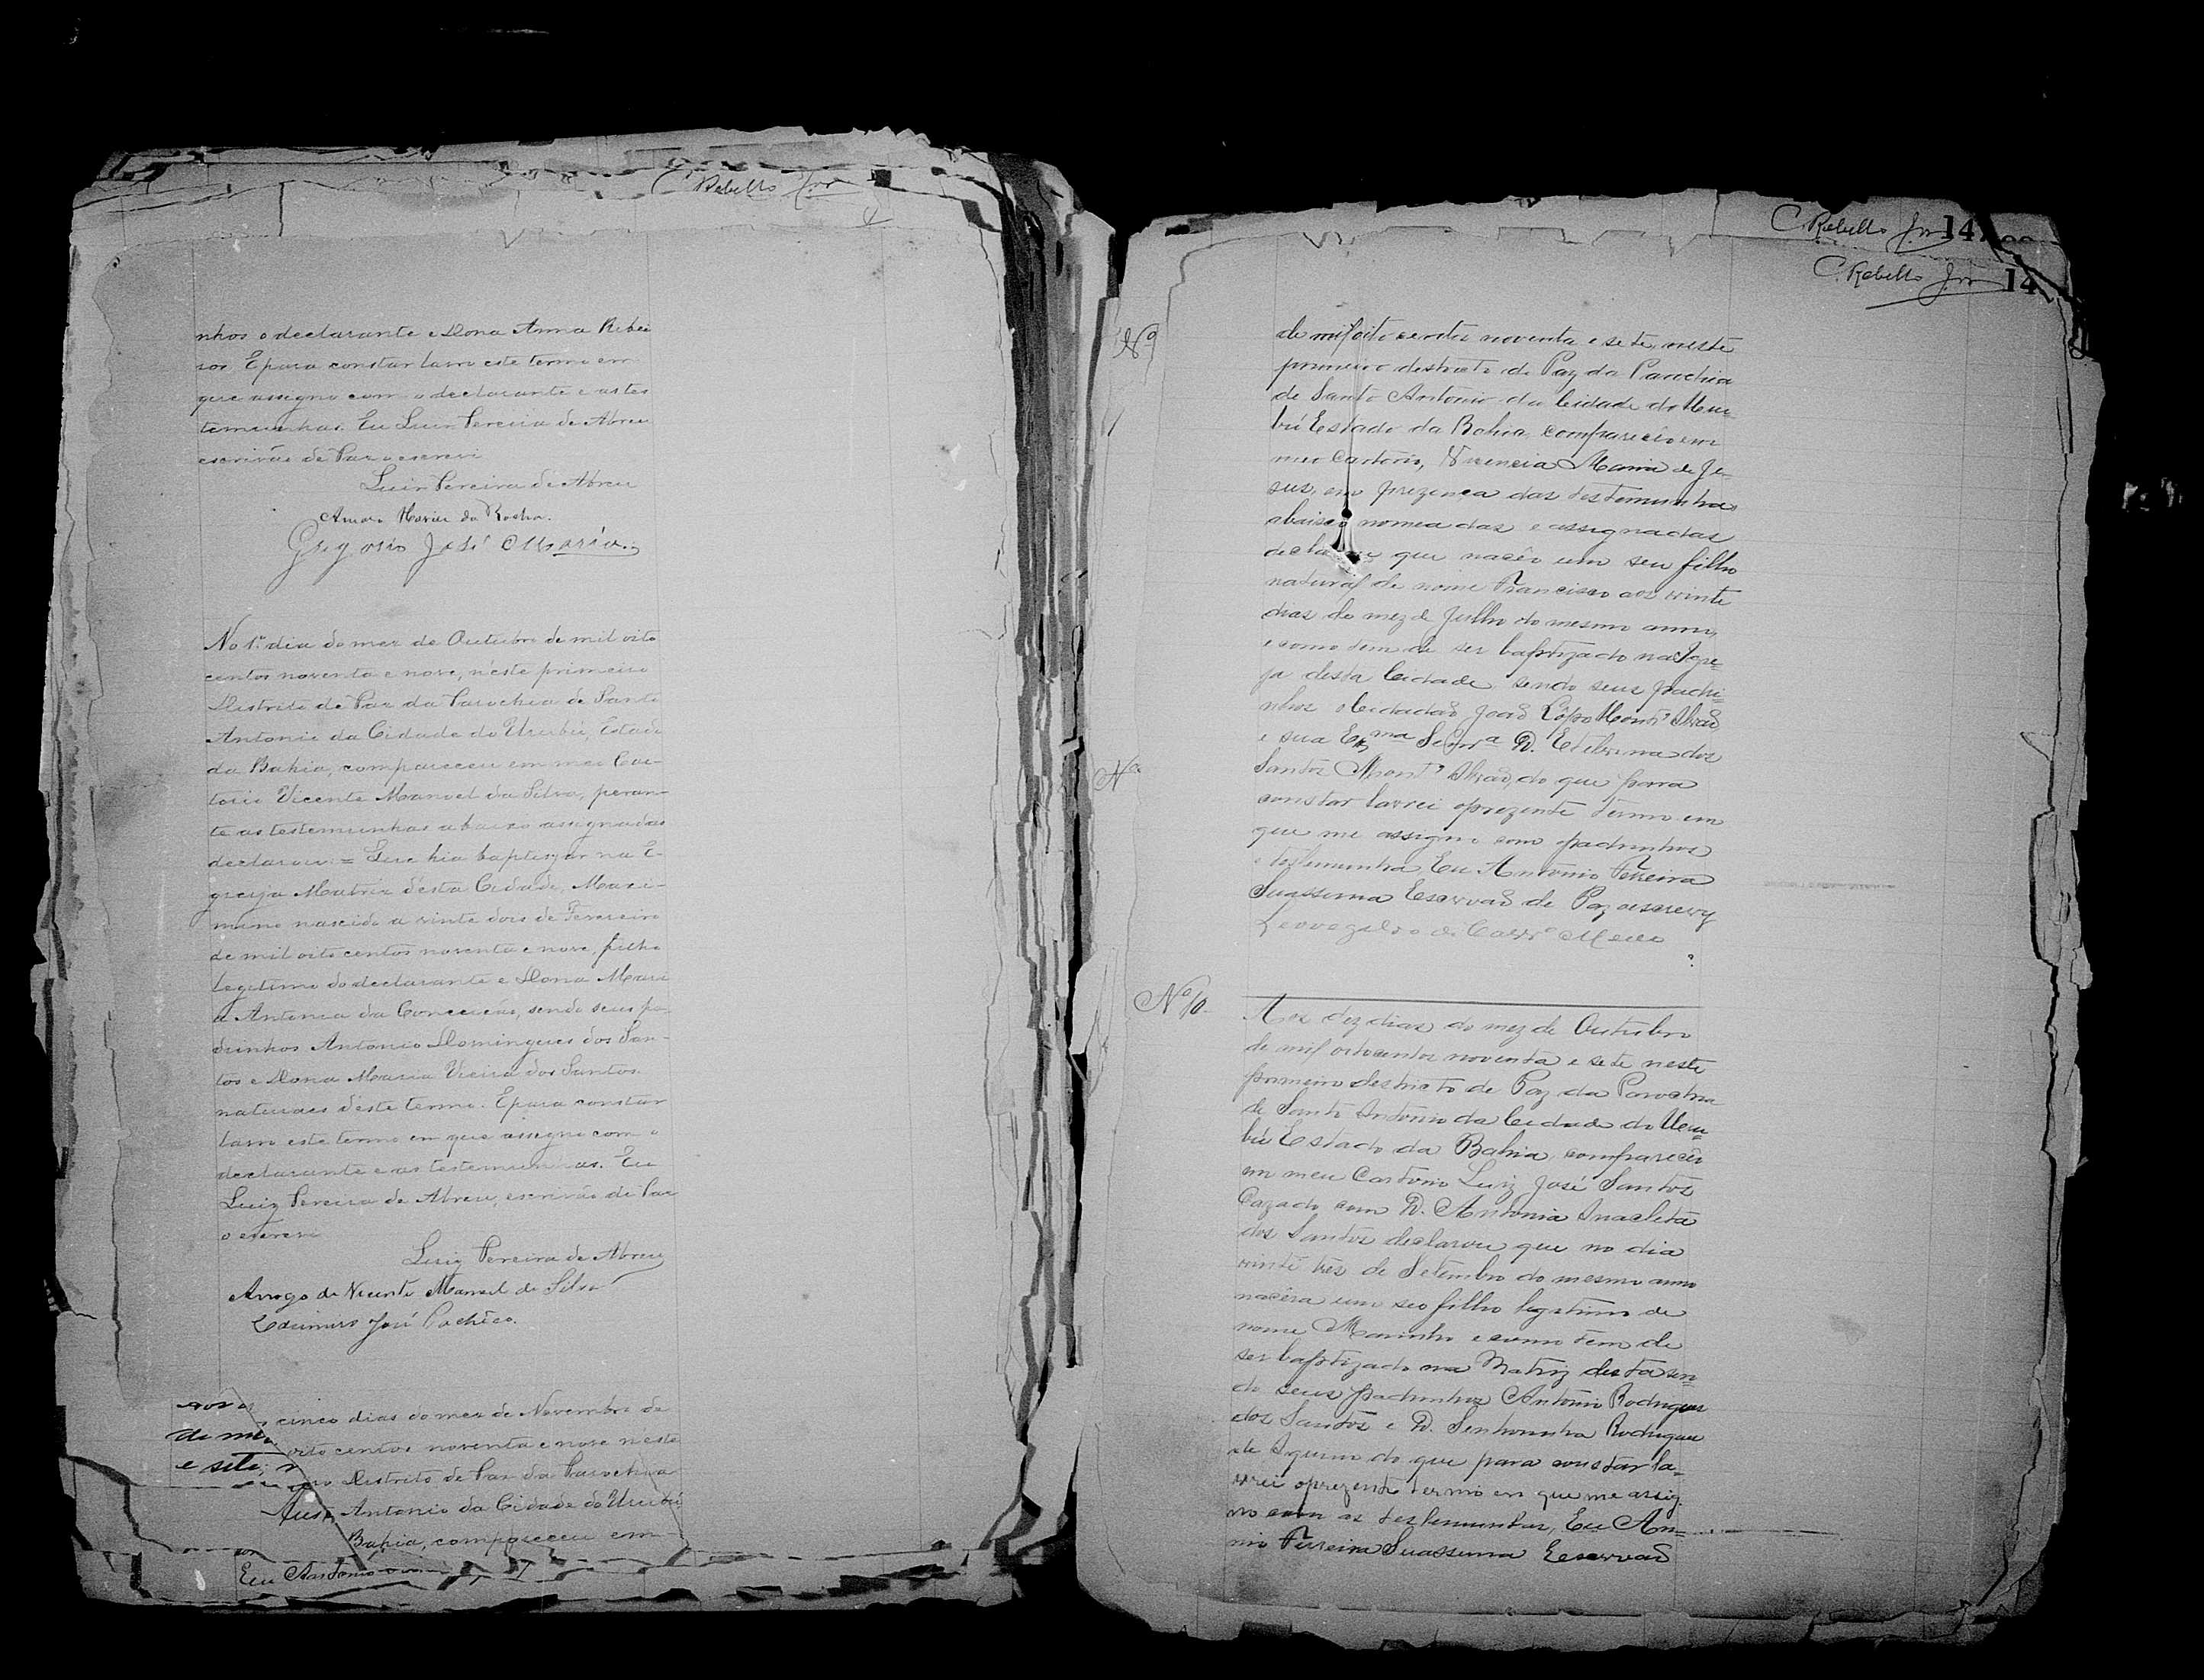 C. Rebello Jor
nhos o declarante e Dona Anna Ribei
ros. E para constar lavro este termo em
que assigno com o declarante e as tes
temunhas. Eu Luiz Pereira de Abreu
escrivão de Paz o escrevi
Luiz Pereira de Abreu
Amaro Xavier da Rocha.
Gregorio José Maria
No 1º dia do mez de Outubro de mil oito
centos noventa e nove, néste primeiro
Districto de Paz da Parochia de Santo
Antonio da Cidade do Urubú, Estado
da Bahia, compareceu em meo Car-
torio Vicente Manoel da Silva, peran-
te as testemunhas abaixo assignadas
declarou: = Que hia baptizar na E-
greja Matriz désta Cidade, Maxi-
miano nascido a vinte dois de Fevereiro
de mil oito centos noventa e nove, filho
legitimo do declarante e Dona Maria
Antonia da Conceição, sendo seus pa-
drinhos Antonio Domingues dos San-
tos e Dona Maria Vieira dos Santos
naturaes déste termo. E para constar
lavro este termo em que assigno com o
declarante e as testemunhas. Eu
Luiz Pereira de Abreu, escrivão de Paz
o escrevi
Luiz Pereira de Abreu
Arrogo de Vicente Manoel da Silva
Casimiro José Pacheco.
cinco dias do mez de Novembro de
oito centos noventa e nove néste
e sete, Districto de Paz da Parochia
Antonio da Cidade do Urubú
Bahia, compareceu em
Eu Antonio
C. Rebello Jor 14
C. Rebello Jor 14
Nº
de mil oito centos noventa e sete, neste
primeiro destricto de Paz da Parochia
de Santo Antonio da Cidade do Uru=
bú Estado da Bahia, compareceo em
meu Cartorio, Vicencia Maria de Je
sus, em prezenca das testemunhas
abaixo nomeadas e assignadas
que nacêo um seu filho
natural de nome Francisco aos vinte
dias do mez de Julho do mesmo anno,
e como tem de ser baptizado na Igre=
ja desta Cidade sendo seus padri=
nhos o Cidadaõ Joaõ Lôpo Mont.º
e sua Exma Senra D. Etelvina dos
Santos Mont.º do que para
constar lavrei o prezente termo em
que me assigno com o padrinhos
e testemunha Eu Antonio Ferreira
Suassuna Escrivaõ de Paz o escrevy
Leovegildo de Mello
Nº 10.
Aos dez dias do mez de Outubro
de mil oitocentos noventa e sete neste
primeiro destricto de Paz da Parochia
de Santo Antonio da Cidade do Uru=
bú Estado da Bahia, compareceo
em meu Cartorio Luiz José Santos
Cazado com D. Antonia Anacleta
dos Santos declarou que no dia
vinte tres de Setembro do mesmo anno
nacêra um seo filho legitimo de
nome Marinho e como tem de
ser baptizado na Matriz desta sen=
do seus padrinhos Antonio Rodrigues
dos Santos e D. Senhorinha Rodrigues
de Aquino do que para constar la=
vrei o prezente termo em que me assig.
no com as testemunhas, Eu An=
nio Ferreira Suassuna Escrivaõ